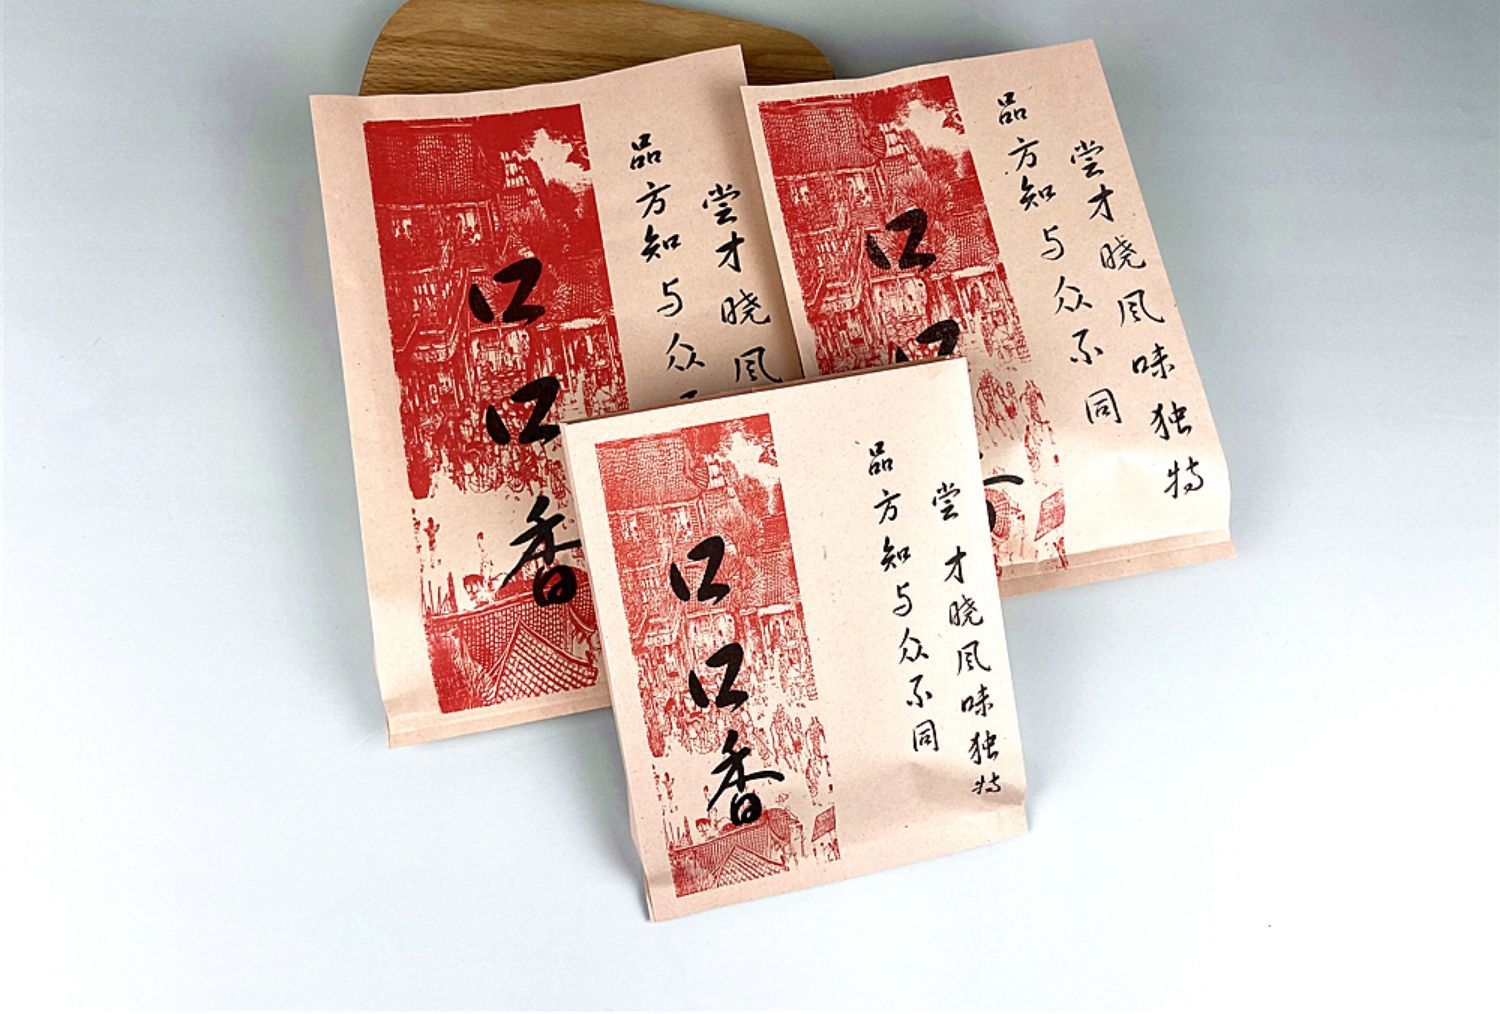 口口香
品方知与众不同
尝才晓风
口口
品方知与众不同
尝才晓风味独特
口口香
品方知与众不同
尝才晓风味独特